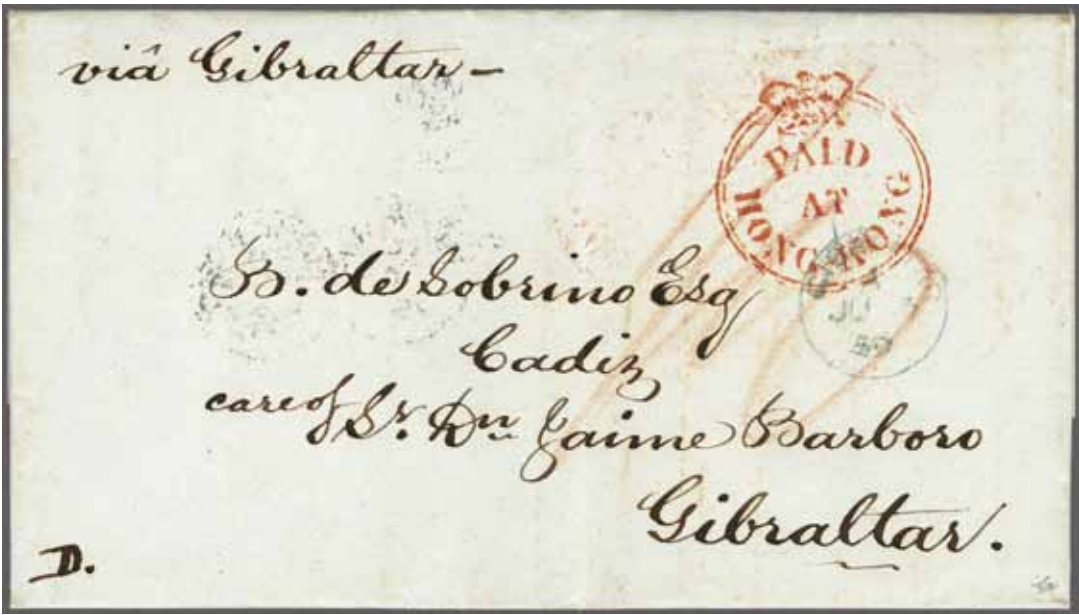 viâ Gibraltar –
PAID
AT
HONG KONG
B. de Sobrino Esq
Cadiz
care of Sr. Dn Jaime Barboro
Gibraltar.
D.